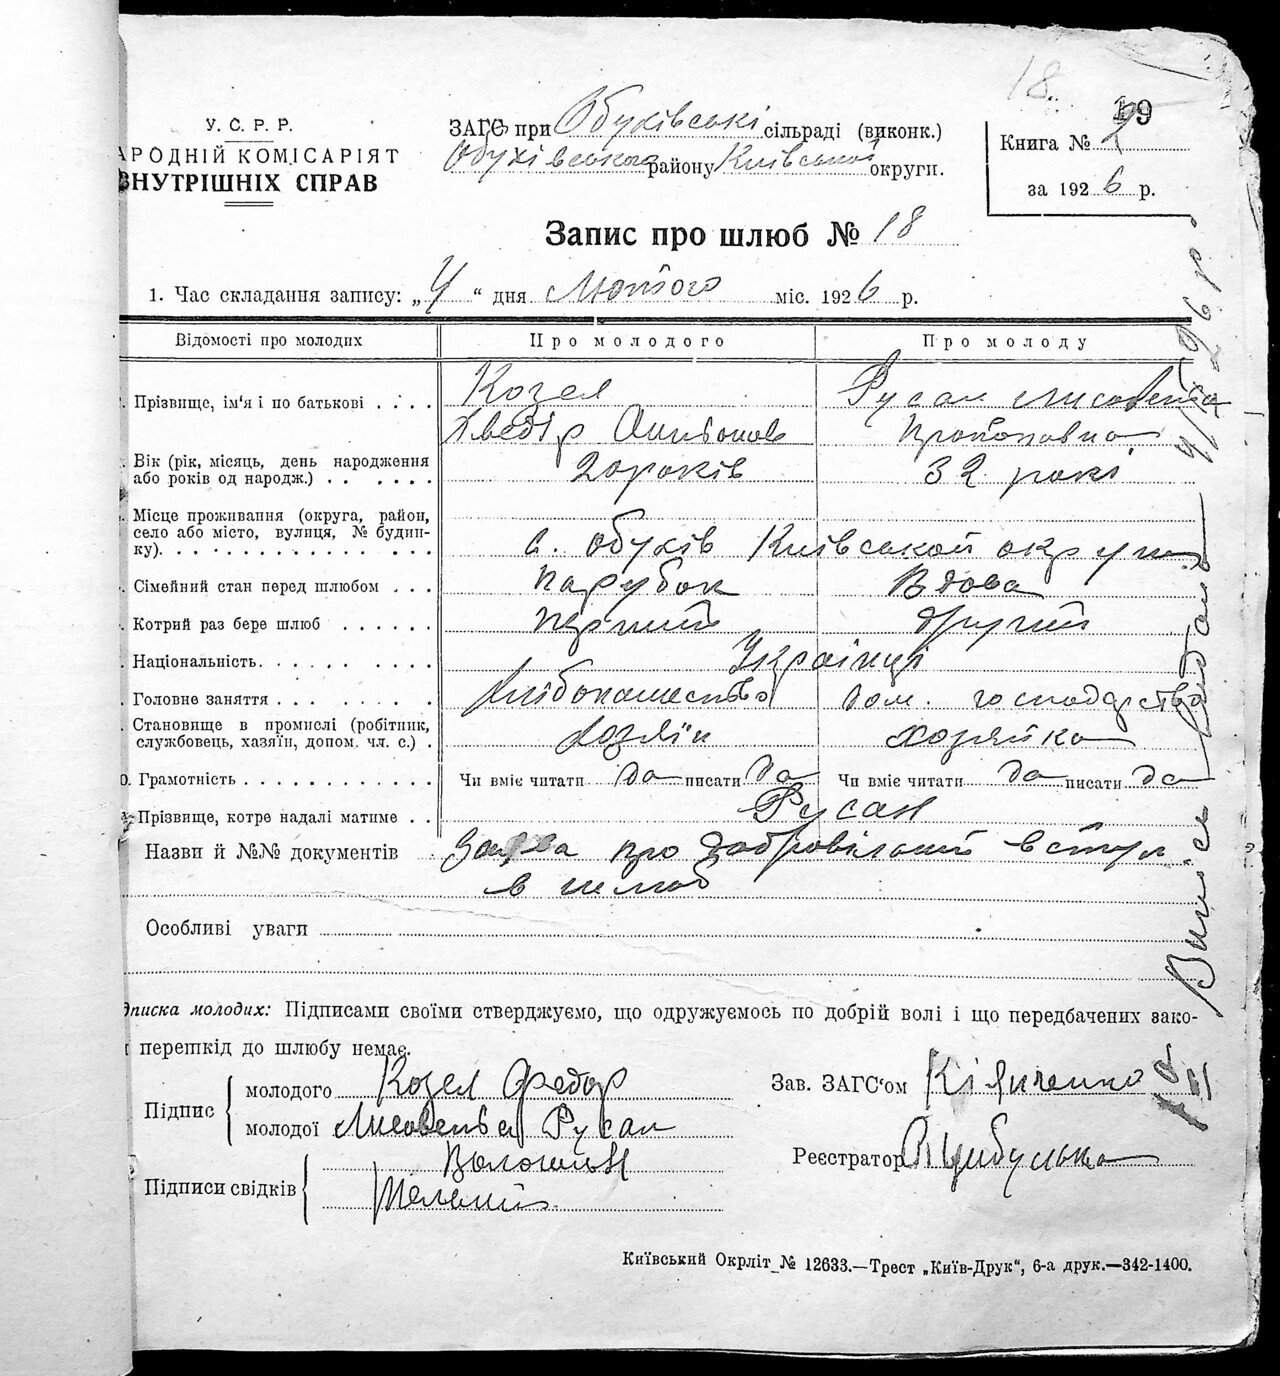 18.
19
У. С. Р. Р.
АРОДНІЙ КОМІСАРІЯТ
ВНУТРІШНІХ СПРАВ
ЗАГС при Обухівські сільраді (виконк.)
Обухівського району Київської округи.
Книга № 2
за 1926 р.
Запис про шлюб № 18
1. Час складання запису: „4“ дня Лютого міс. 1926 р.
Відомості про молодих Про молодого Про молоду
Прізвище, ім'я і по батькові . . . . Козел Русан Лисовета
Хведір Прокоповна
Вік (рік, місяць, день народження
або років од народж.) . . . . . . 20 років 32 рокі
Місце проживання (округа, район,
село або місто, вулиця, № будин-
ку). . . . . . . . . . . . . . с. Обухів Київськой округи
Сімейний стан перед шлюбом . . . парубок Вдова
Котрий раз бере шлюб . . . . . . першій другий
Національність. . . . . . . . . . Українці
Головне заняття . . . . . . . . Хлібопашество Дом. господарство
Становище в промислі (робітник,
службовець, хазяїн, допом. чл. с.) . хозяїн хозяйка
0. Грамотність . . . . . . . . . . . Чи вміє читати да писати да Чи вміє читати да писати да
Прізвище, котре надалі матиме . . Русан
Назви й №№ документів . Заява про добровільний вступ
в шлюб
Особливі уваги
дписка молодих: Підписами своїми стверджуємо, що одружуємось по добрій волі і що передбачених зако-
перешкід до шлюбу немає.
Підпис
молодого Козел Федор
молодої Лисовета Русан
Підписи свідків
Волошин
Мельник
Зав. ЗАГС'ом Кіяшченко
Реєстратор Цибулька
Київський Окрліт № 12633.—Трест „Київ-Друк“, 6-а друк.—342-1400.
4/II 26 р.